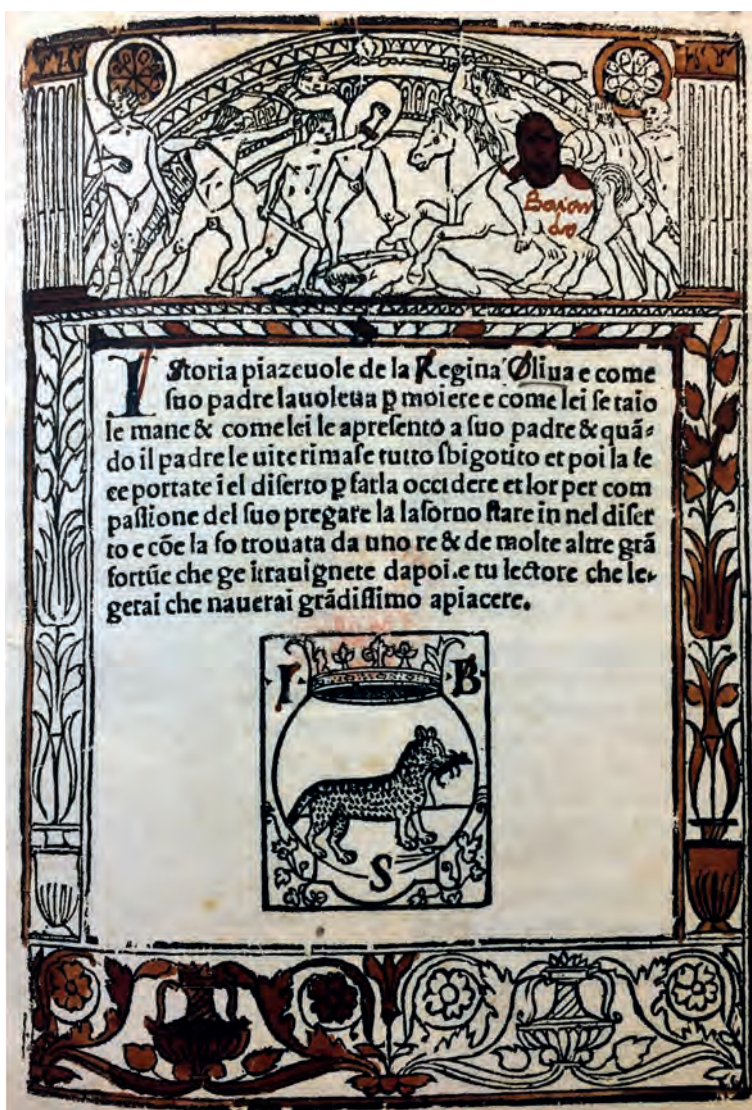 Baion
do
IStoria piazeuole de la Regina Oliua e come
suo padre lauoleua p̱ moiere e come lei se taio
le mane & come lei le apresento a suo padre & quã-
do il padre le uite rimase tutto sbigotito et poi la fe
ce portate i el diserto p̱ farla occidere et lor per com
passione del suo pregare la lasorno stare in nel diser
to e cõe la fo trouata da uno re & de molte altre grã
fortũe che ge itrauignete dapoi.e tu lectore che le-
gerai che nauerai grãdissimo apiacere.
I B
S